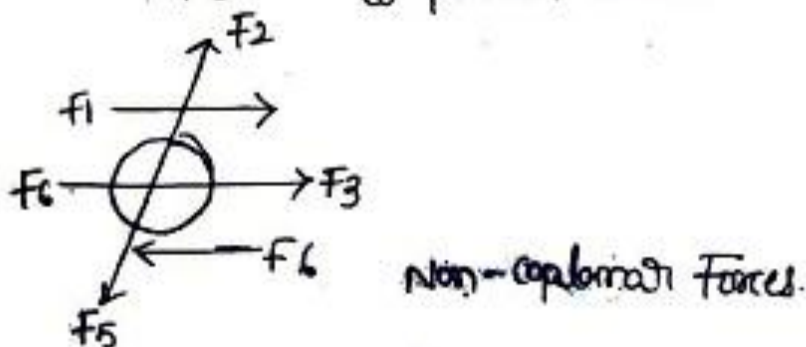 F2
f1
F6 F3
F6
Non-coplanar Forces.
F5